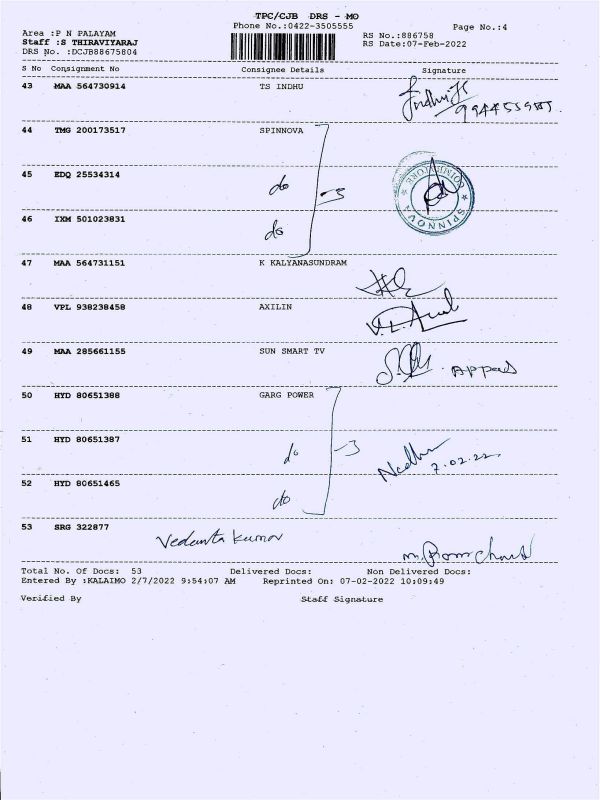 TPC/CJB DRS - MO
Phone No.:0422-3505555 Page No.:4
Area :P N PALAYAM RS No.:886758
Staff :S THIRAVIYARAJ RS Date:07-Feb-2022
DRS No. :DCJB88675804
S No Consignment No Consignee Details Signature
43 MAA 564730914 TS INDHU
44 TMG 200173517 SPINNOVA
45 EDQ 25534314 do -3
COIMBATORE
SPINNOVA
46 IXM 501023831 do
47 MAA 564731151 K KALYANASUNDRAM
48 VPL 938238458 AXILIN
49 MAA 285661155 SUN SMART TV
50 HYD 80651388 GARG POWER
51 HYD 80651387 do -3
7.02.22.
52 HYD 80651465 do
53 SRG 322877 Vedanta kumar
Total No. Of Docs: 53 Delivered Docs: Non Delivered Docs:
Entered By :KALAIMO 2/7/2022 9:54:07 AM Reprinted On: 07-02-2022 10:09:49
Verified By Staff Signature